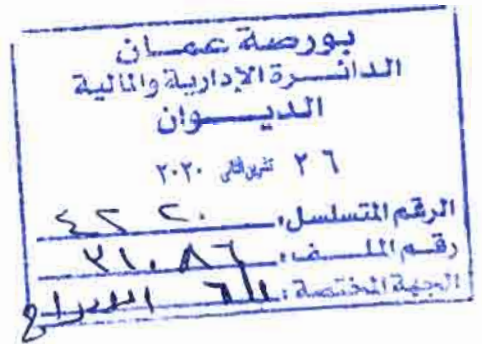 بورصة عمان
الدائرة الإدارية والمالية
الديوان
٢٦ تشرين الثاني ٢٠٢٠
الرقم المتسلسل:
رقم الملف: ٣١٠٨٦
الجهة المختصة: الادراج